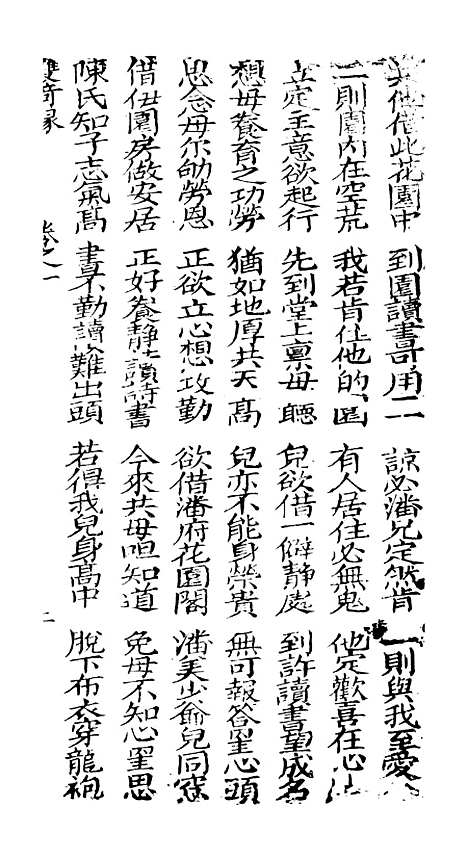 他借此花園中 到園讀書可用 諒必潘兄定然肯 一則與我至愛
二則園內在空荒 我若肯住他的園 有人居住必無鬼 他定歡喜在心
立定主意欲起行 先到堂上禀母聽 兒欲借一僻静處 到許讀書望成名
想母養育之功勞 猶如地厚共天高 兒亦不能身榮貴 無可報答罣心頭
思念母尔劬勞恩 正欲立心想攻勤 欲借潘府花園閣 潘美少爺兒同窓
借伊園房做安居 正好養静讀詩書 今來共母呾知道 免母不知心罣思
陳氏知子志氣高 書不勤讀難出頭 若得我兒身高中 脫下布衣穿龍袍
雙奇緣 卷之一 二